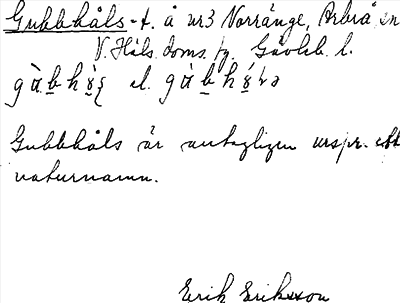 Gubbhåls -t. å nr3 Norränge, Arbrå sn
V. Häls. doms. fg. Gävleb. l.
el.
Gubbhåls är antagligen urspr. ett
naturnamn.
Erik Eriksson